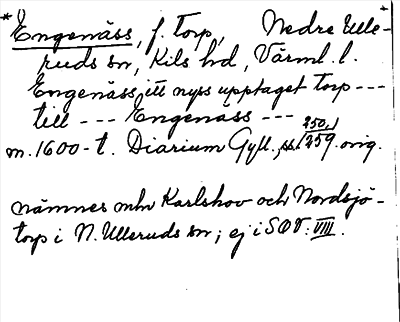 * Engenäss, f. torp, Nedre Ulle-
ruds sn, Kils hd, Värml. l.
Engenäss ett nyss upptaget torp ---
till --- Engenäss ---
m. 1600-t. Diarium Gyll., ss. 250, 1259. orig.
nämnes mhn Karlshov och Nordsjö-
torp i N. Ulleruds sn; ej i SOV. VIII.